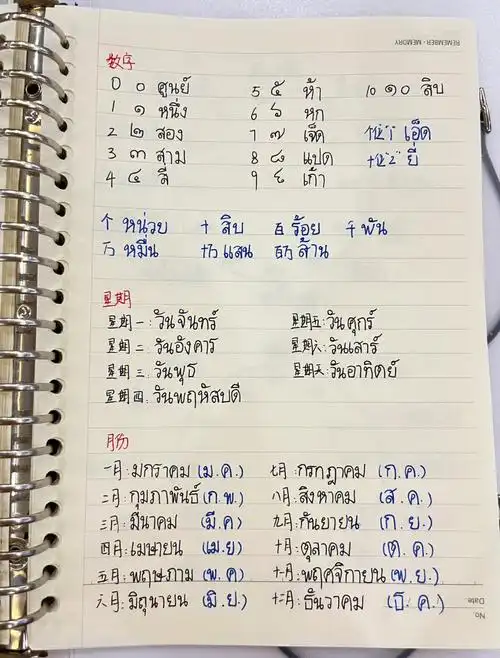 REMEMBER · MEMORY
数字
0 ๐ ศูนย์ 5 ๕ ห้า 10 ๑๐ สิบ
1 ๑ หนึ่ง 6 ๖ หก
2 ๒ สอง 7 ๗ เจ็ด 个位"1" เอ็ด
3 ๓ สาม 8 ๘ แปด 十位"2" ยี่
4 ๔ สี่ 9 ๙ เก้า
个 หน่วย 十 สิบ 百 ร้อย 千 พัน
万 หมื่น 十万 แสน 百万 ล้าน
星期
星期一: วันจันทร์ 星期五: วันศุกร์
星期二: วันอังคาร 星期六: วันเสาร์
星期三: วันพุธ 星期天: วันอาทิตย์
星期四: วันพฤหัสบดี
月份
一月: มกราคม (ม.ค.) 七月: กรกฎาคม (ก.ค.)
二月: กุมภาพันธ์ (ก.พ.) 八月: สิงหาคม (ส.ค.)
三月: มีนาคม (มี.ค) 九月: กันยายน (ก.ย.)
四月: เมษายน (เม.ย) 十月: ตุลาคม (ต.ค.)
五月: พฤษภาม (พ.ค) 十一月: พฤศจิกายน (พ.ย.)
六月: มิถุนายน (มิ.ย.) 十二月: ธันวาคม (ธ.ค.)
Date
No.